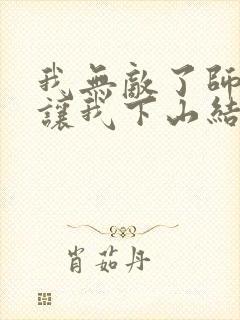 我無敵了師
讓我下山結
肖茹丹